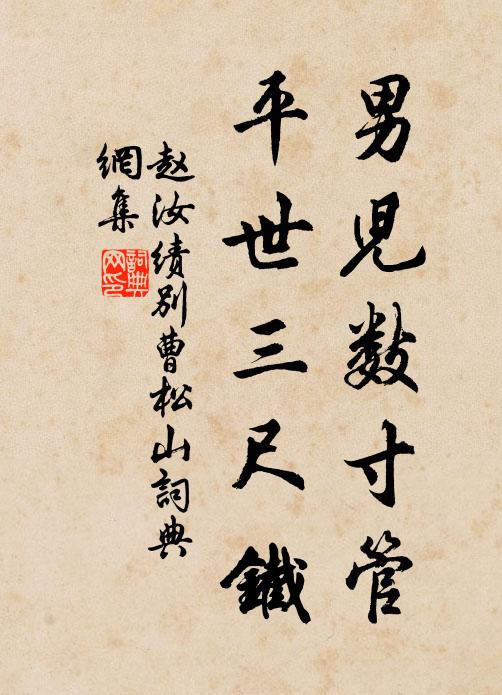 男児数寸管
平世三尺鐵
赵汝绩别曹松山詞典
網集
詞典
网印